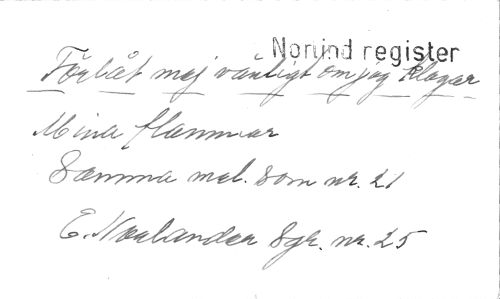 Norlind register
Förlåt mej vänligt om jag klagar
Mina flammor
Samma mel. som nr. 21
E. Norlander Sgr. nr. 25